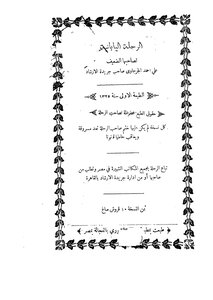 الرحلة اليابانية
لصاحبها الضعيف
علي احمد الجرجاوي صاحب جريدة الارشاد
الطبعة الاولى سنة ١٣٢٥
حقوق الطبع محفوظة لصاحب الرحلة
كل نسخة لم يكن بها ختم صاحب الرحلة تعد مسروقة
ويعاقب حاملها قانونا
تباع الرحلة بجميع المكاتب الشهيرة في مصر وتطلب من
صاحبها أو من ادارة جريدة الارشاد بالقاهرة
ثمن النسخة ١٠ قروش صاغ
طبعت بمط ردي بالفجالة بمصر